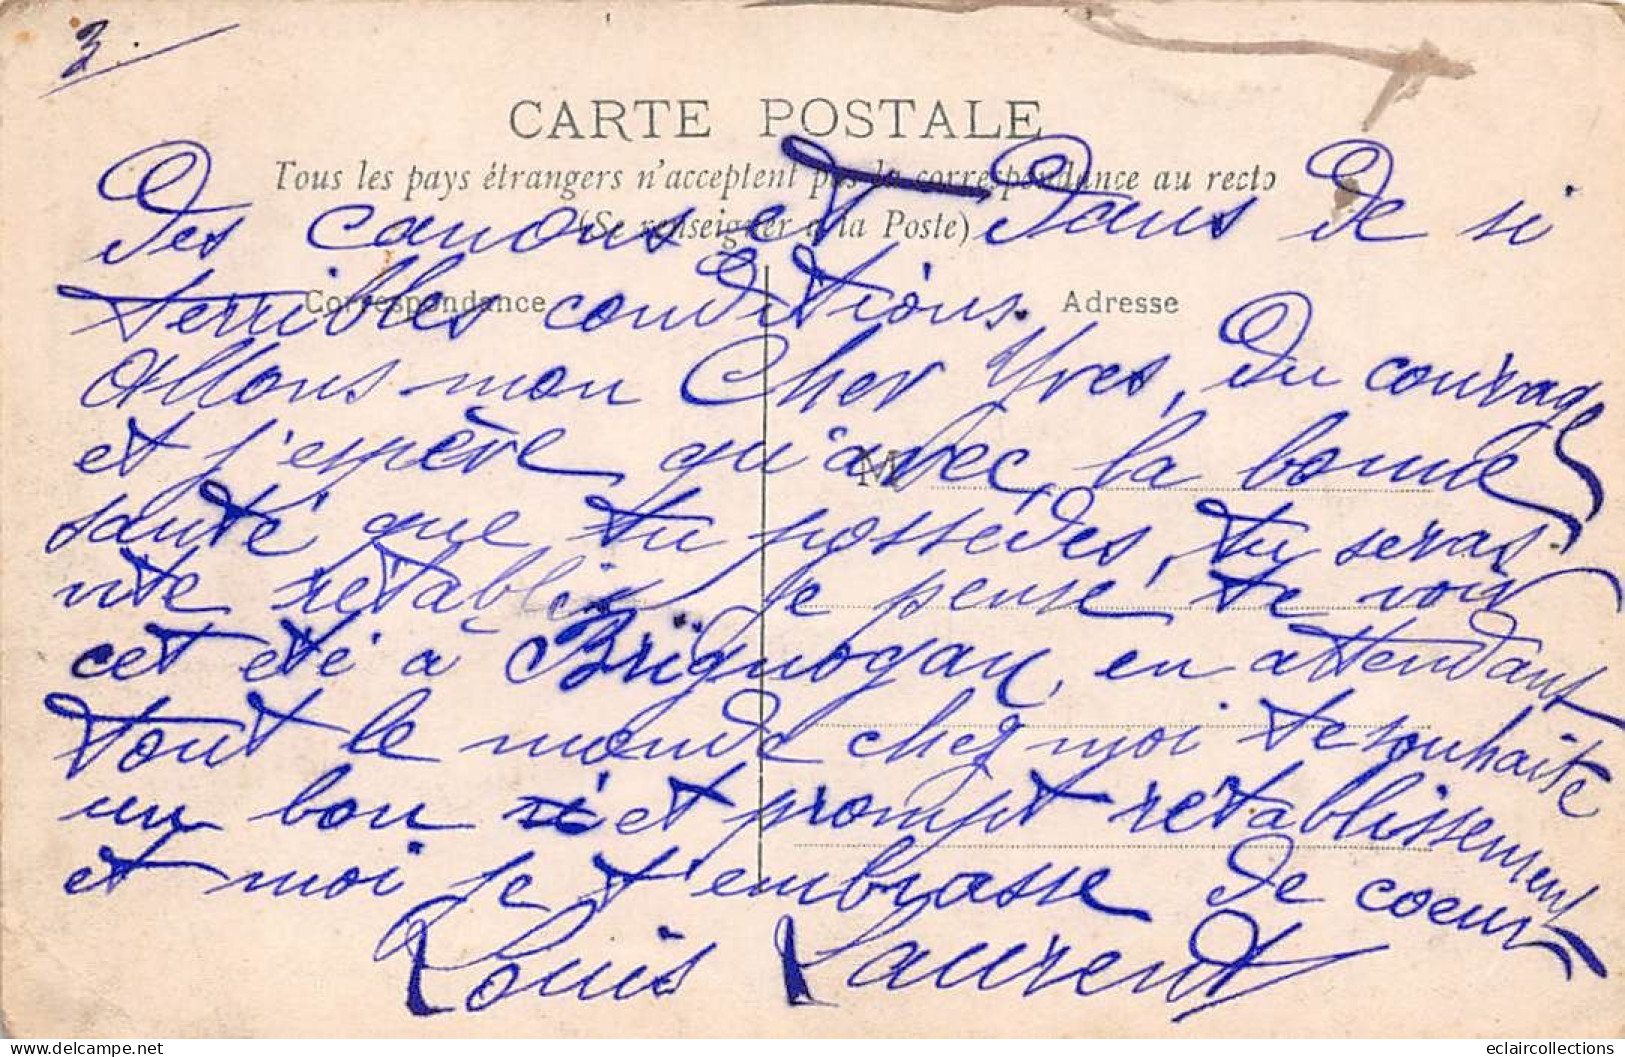 3.
CARTE POSTALE
Tous les pays étrangers n'acceptent pas la correspondance au recto
(Se renseigner à la Poste)
Correspondance
Adresse
M
des canons et dans de si
terribles conditions.
Allons mon Cher Yves, du courage
et j'espère qu'avec la bonne
santé que tu possèdes, tu seras
vite rétabli. Je pense te voir
cet été à Brignogan, en attendant
tout le monde chez moi te souhaite
un bon et prompt rétablissement
et moi je t'embrasse de coeur
Louis Laurent
delcampe.net
eclaircollections